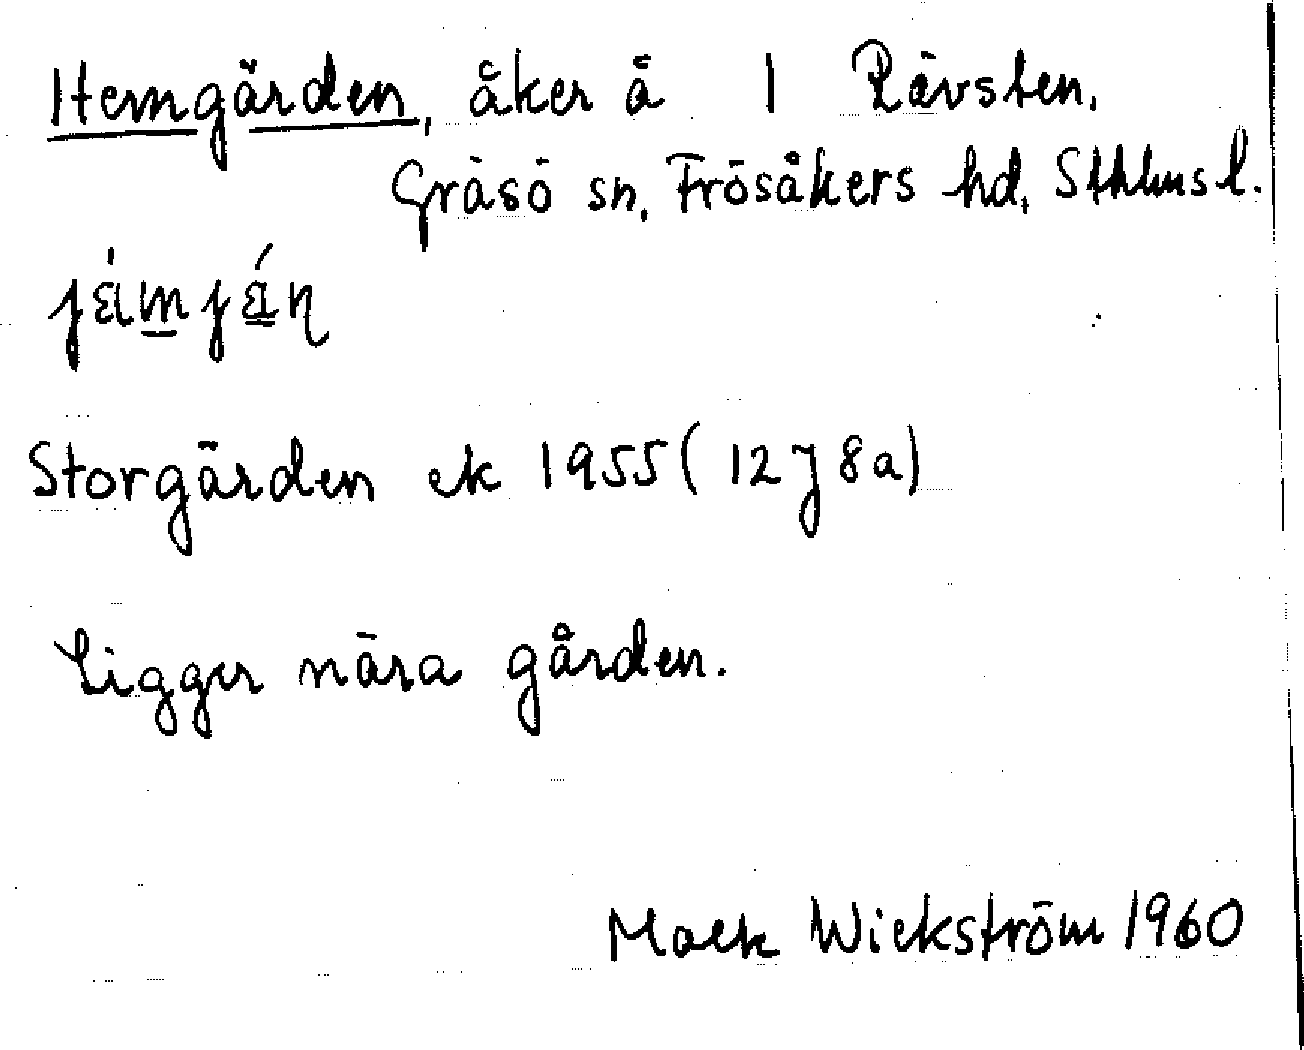 Hemgärden, åker å 1 Rävsten,
Gräsö sn, Frösåkers hd, Sthlms l.
Storgärden ek 1955 (12 J 8a)
Ligger nära gården.
Wickström 1960